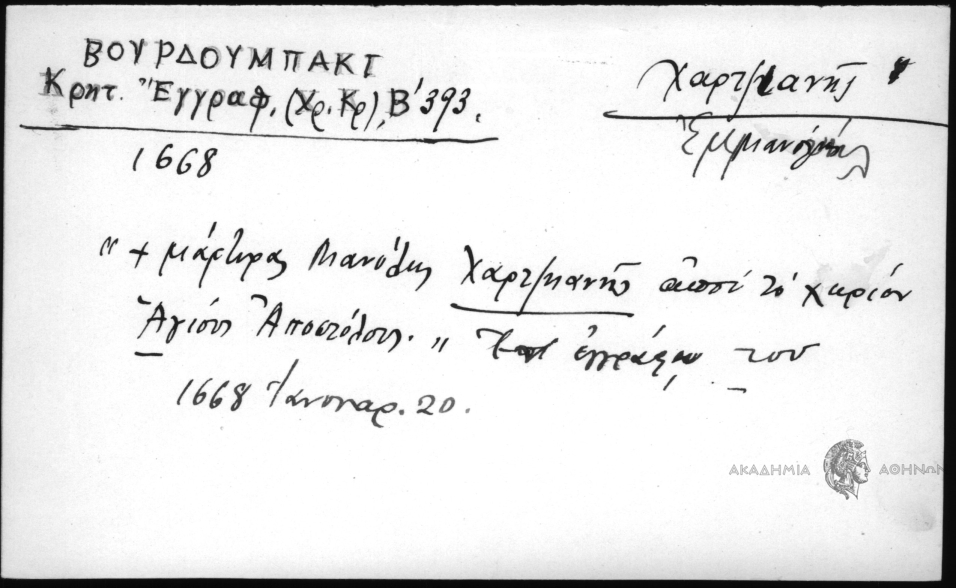 ΒΟΥΡΔΟΥΜΠΑΚΙ
Κρητ. Ἔγγραφ. (Χρ. Κρ), Β' 393.
1668
Χαρτζιανῆς
Ἐμμανουὴλ
"+ μάρτυρας Μανόλης Χαρτζιανῆς ἀπὸ τὸ χωριόν
Ἁγίους Ἀποστόλους. " ἐγγράφου του
1668 Ἰανουαρ. 20.
ΑΚΑΔΗΜΙΑ ΑΘΗΝΩΝ